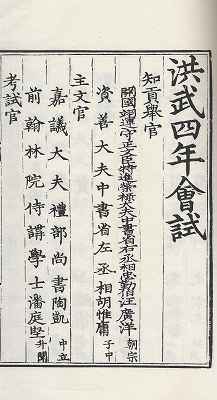 洪武四年會試
知貢舉官
開國翊運守正文臣特進榮祿大夫中書省右丞相忠勤伯汪廣洋 朝宗
資善大夫中書省左丞相胡惟庸 子中
主文官
嘉議大夫禮部尚書陶凱 中立
前翰林院侍講學士潘庭堅 聞
考試官